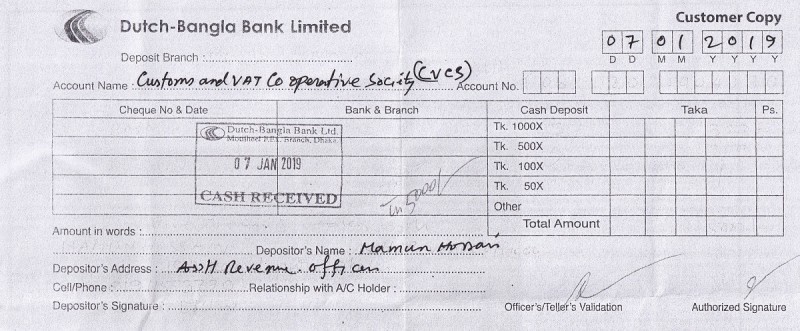 Dutch-Bangla Bank Limited
Customer Copy
07 01 2019
D D M M Y Y Y Y
Deposit Branch :
Account Name : Customs and VAT Co operative Society (CVCS) Account No.
Cheque No & Date Bank & Branch Cash Deposit Taka Ps.
Tk. 1000X
Tk. 500X
Tk. 100X
Tk. 50X
Other
Total Amount
Dutch-Bangla Bank Ltd.
Branch, Dhaka.
07 JAN 2019
CASH RECEIVED
Amount in words :
Depositor's Name : Mamun Hossan
Depositor's Address : Asstt Revenue officer
Cell/Phone : Relationship with A/C Holder :
Depositor's Signature : Officer's/Teller's Validation Authorized Signature